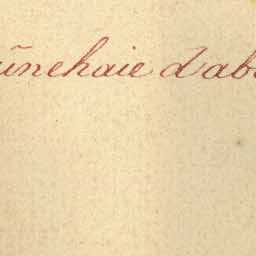 ũnehaie d'ab